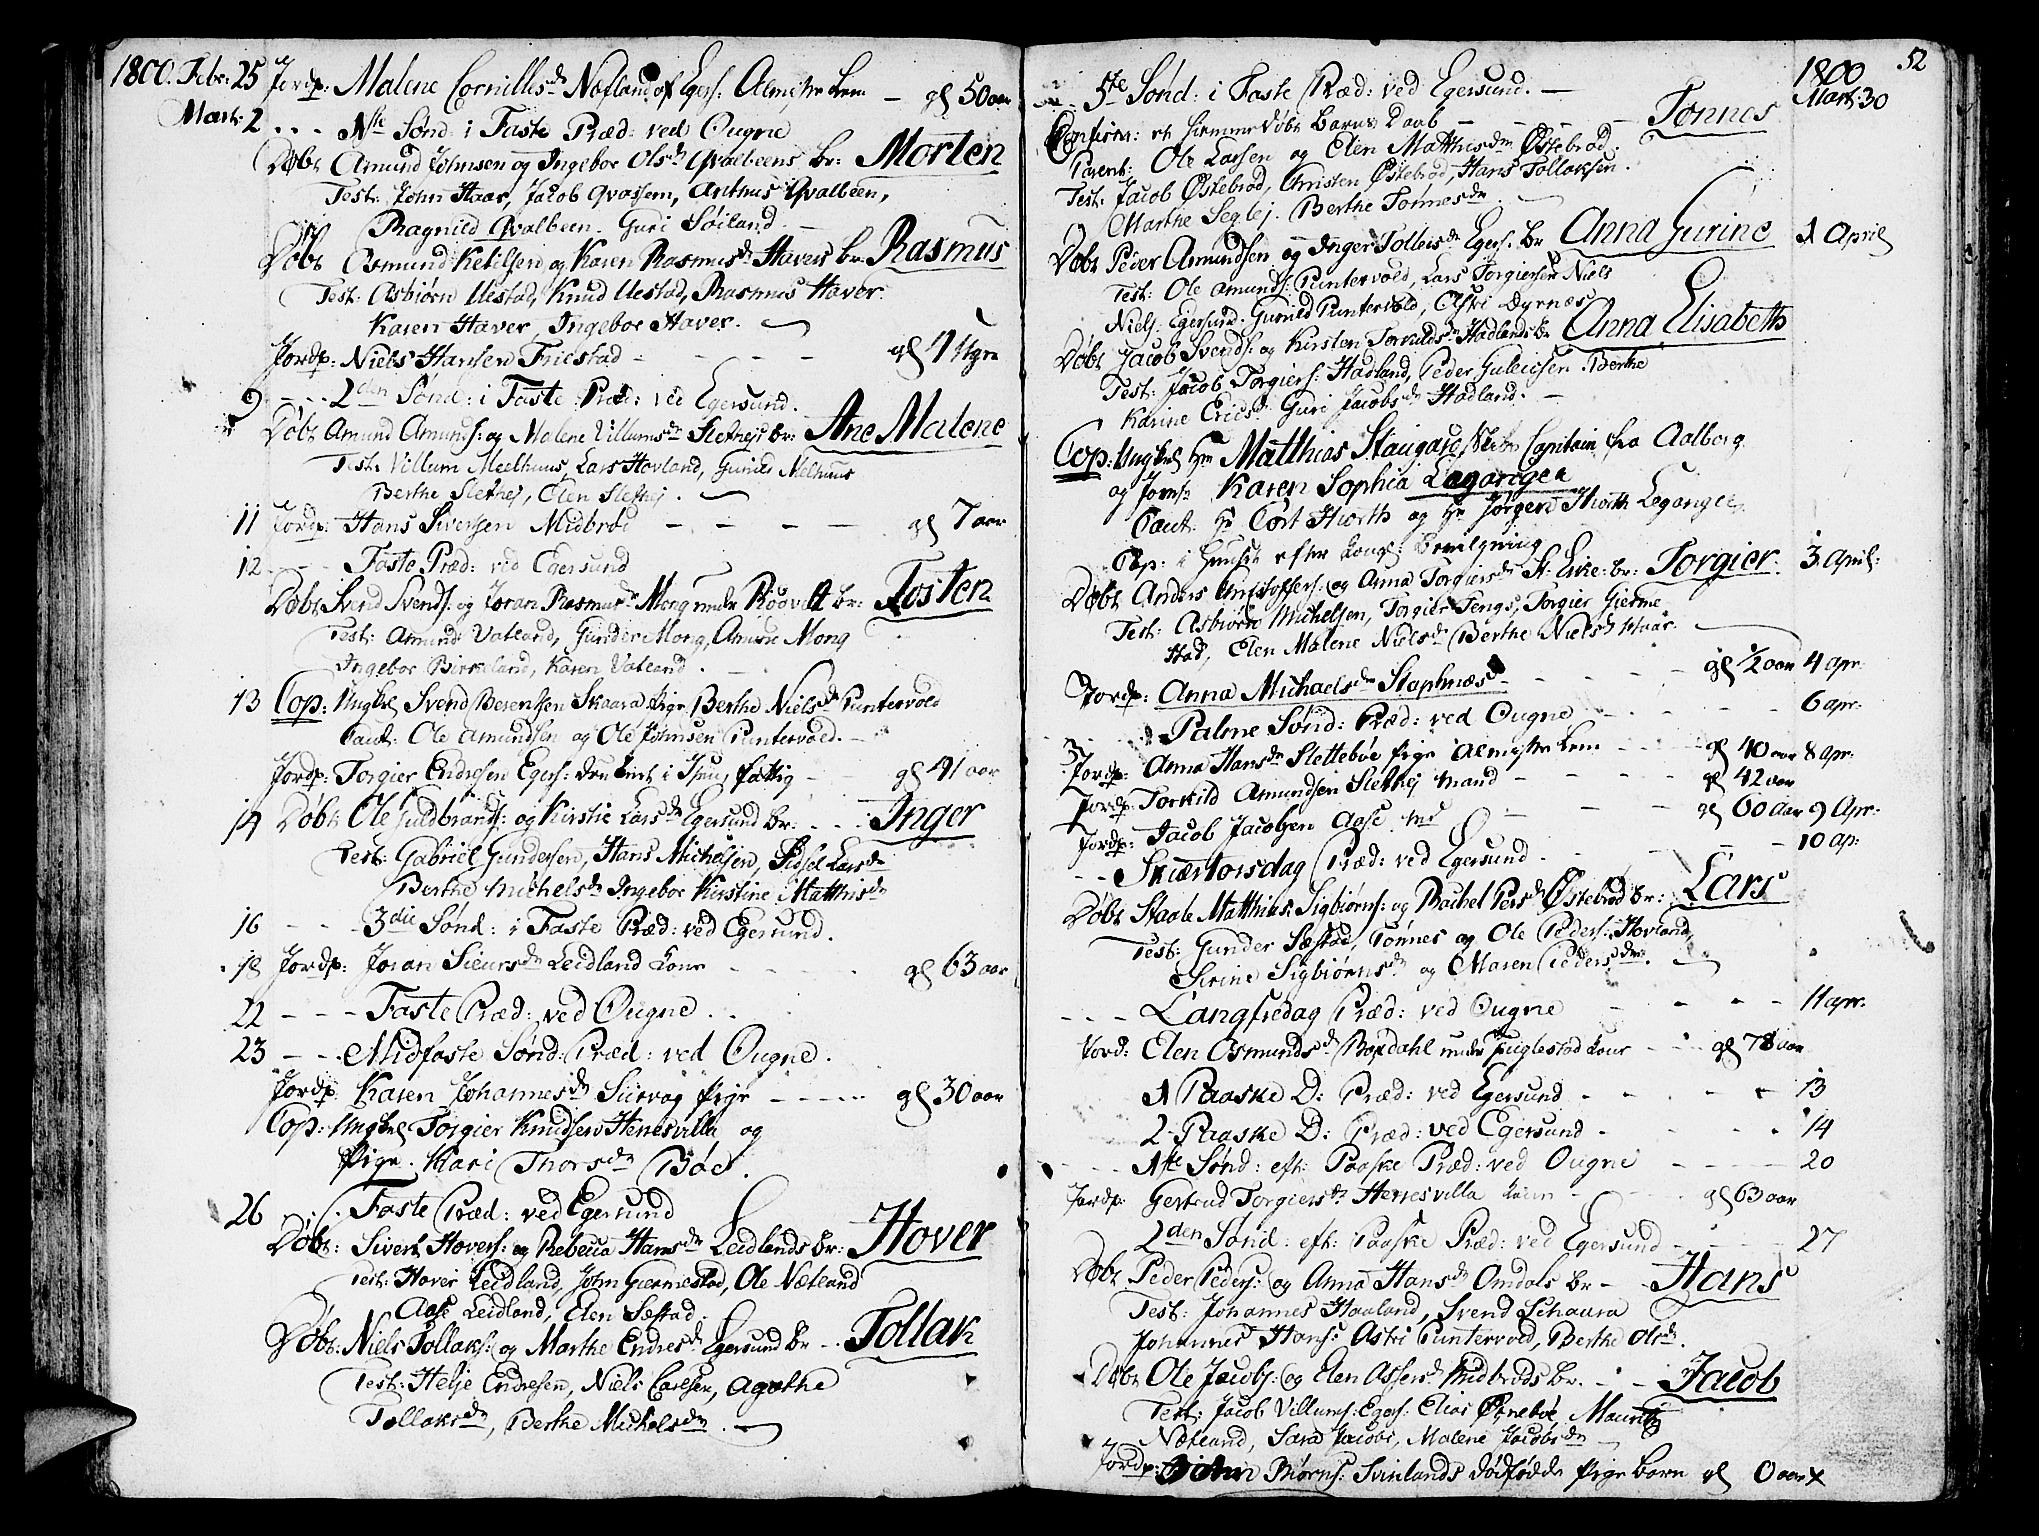 1800. Febr: 25 Jordp: Malene Cornilles dr Nefland af Egers: Almisse Lem — gl 50 aar
Mart: 2 . . . 1ste Sønd: i Faste Præd: ved Ougne
Døbt Amund Johnsen og Ingebor Ols dr Qvalbeens br: Morten
Test: John Haar, Jacob Qvassem, Antnus Qvalbeen,
Ragnild Qvalbeen. Guri Søiland. —
Døbt Osmund Ketilsen og Karen Rasmus dr Havers br: Rasmus
Test: Asbiørn Uestad, Knud Uestad, Rasmus Haver.
Karen Haver, Ingebor Haver.
Jordp: Niels Hansen Friestad - - - - gl 7 Uger
9 - - - 2den Sønd: i Faste Præd: ved Egersund.
Døbt Amund Amunds: og Malene Villums dr Sletheis br: Ane Malene
Test: Villum Meelhuus, Lars Hovland, Guried Melhuus
Berthe Slethej, Elen Slethej.
11 Jordp: Hans Siversen Midbrød - - - - gl 7 aar
12 - - - Faste Præd: ved Egersund
Døbt Svend Svends: og Joran Rasmus dr Mong br: Tosten
Test: Amund Vatland, Gunder Mong, Amund Mong
Ingebor Birkeland, Karen Vatland.
13 Cop: Ungkel Svend Berentsen Skaara Pige Berthe Niels dr Puntervold
Caut: Ole Amundsen og Ole Johnsen Puntervold. —
Jordp: Torgier Endresen Egers: fattig - - gl 41 aar
14 Døbt Ole Guldbrands: og Kirstie Lars dr Egersund br: . . . Inger
Test: Gabriel Gundersen, Hans Michelsen, Sidsel Lars dr
Berthe Michels dr Ingebor Kirstine Matthis dr
16 - - - 3die Sønd: i Faste Præd: ved Egersund.
18 Jordp: Joran Siurs dr Leidland Kone - - - gl 63 aar
22 - - - Faste Præd: ved Ougne . .
23 - - . Midfaste Sønd: Præd: ved Ougne.
Jordp: Karen Johannes dr Sirevog Pige - - - - - gl 30 aar
Cop: Ungkel Torgier Knudsen Herresvilla og
Pige. Kari Thors dr Bøe.
26 . . . Faste Præd: ved Egersund
Døbt: Sivert Hovers: og Rebecca Hans dr Leidlands br: Hover
Test: Hover Leidland, John Giermestad, Ole Nætland
Aase Leidland, Elen Sestad.
Døbt: Niels Tollaks: og Marthe Endres dr Egersund br - . Tollak
Test: Helje Endresen, Niels Carlsen, Agathe
Tollaks dr, Berthe Michels dr.
52
1800
5te Sønd: i Faste Præd: ved Egersund. — Mart: 30
Confirm: et hiemmedøbt Barns Daab - - - - Tonnes
Parent: Ole Larsen og Elen Matthis dr Østebrød.
Test: Jacob Østebrød, Christen Østebrød, Hans Tollaksen.
Marthe Seglej. Berthe Tønnes dr.
Døbt Peder Amundsen og Inger Tolleis dr Egers. br Anna Gurine 1 April
Test: Ole Amunds: Puntervold, Lars Torgiersen Niels
Niels: Egersund. Guried Puntervold, Astri Dyrnæs
Døbt Jacob Svends: og Kirsten Torkilds dr Hadlands br Anna Elisabeth
Test: Jacob Torgiers: Hadland, Peder Guleicsen. Berthe
Karine Erics dr Guri Jacobs dr Hadland. —
Cop: Ungkel Hr Matthias Staugard, Capitain fra Aalborg
og Jomfr Karen Sophia Legangen
Caut: Hr Cort Hiorth og Hr Jørgen Hiorth Legangen.
Cop: i Huuset efter Kongl: Bevilgning
Døbt Anders Christophers: og Anna Torgiers dr St: Eie: br: Torgier. 3 April:
Test: Asbiørn Michelsen, Torgier Tengs, Torgier Gierme-
stad, Elen Malene Niels dr Berthe Niels dr Haar.
Jordp: Anna Michaels dr Staplnæs - - - - gl 1/2 aar 4 apr:
. . . Palme Sønd: Præd: ved Ougne - - - 6 apr:
Jordp: Anna Hans dr Slettebøe Pige Almisse Lem - - - gl 40 aar 8 Apr:
Jordp: Torkild Amundsen Slethej Mand - - - - gl 42 aar
Jordp: Jacob Jacobsen Aase - - - gl 60 aar 9 Apr:
- - Skiærtorsdag Præd: ved Egersund. - - - 10 ap:
Døbt Staale Matthias Sigbiørns: og Rachel Pers dr Østebrød br: Lars
Test: Gunder Sæstad, Tønnes og Ole Peders: Hovland,
Sirine Sigbiørns dr og Maren Peders dr.
- - - Langfredag Præd: ved Ougne - - - 11 apr:
Jord: Elen Osmunds dr Bordahl under Fuglestad Kone - - gl 78 aar
1 Paaske D: Præd: ved Egersund - - - - 13
2. Paaske D: Præd: ved Egersund - - . 14
- - - 1ste Sønd: eft: Paaske Præd: ved Ougne - - - - 20
Jordp: Gertrud Torgiers dr Herresvilla Kone - - - gl 63 aar
2den Sønd: eft: Paaske Præd: ved Egersund - - - - 27
Døbt Peder Peders: og Anna Hans dr Omdals br - - Hans
Test: Johannes Haaland, Svend Schaara
Johannes Hans: Astri Puntervold, Berthe Ols dr.
Døbt Ole Jacobs: og Elen Assers dr Midbrøds br. - - Jacob
Test: Jacob Villums: Egers: Elias Ørnebøe, Mauritz
Nætland, Sara Jacobs, Malene Jacobs dr
Jordp: Biørns: Svinlands dødfødde Pige barn gl 0 aar